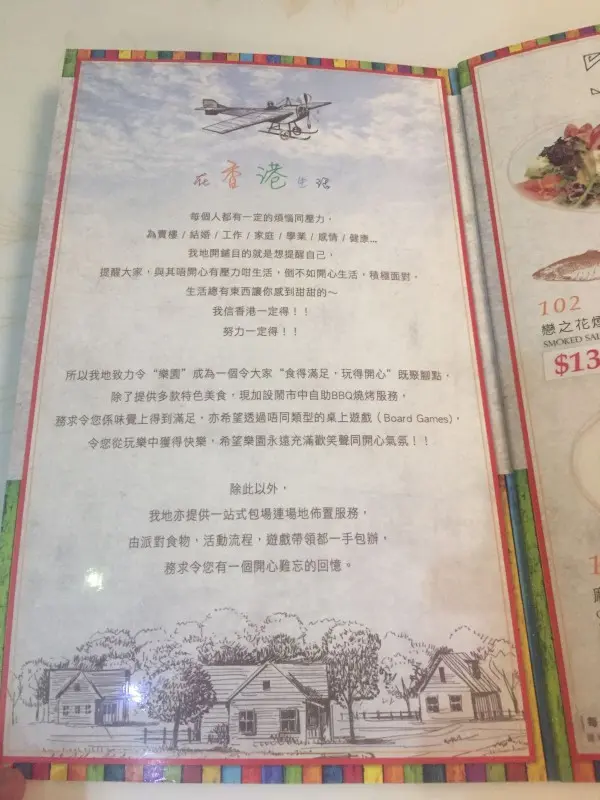 在香港生活
每個人都有一定的煩惱同壓力，
為賣樓 / 結婚 / 工作 / 家庭 / 學業 / 感情 / 健康...
我地開鋪目的就是想提醒自己，
提醒大家，與其唔開心有壓力咁生活，倒不如開心生活，積極面對。
生活總有東西讓你感到甜甜的～
我信香港一定得！！
努力一定得！！
所以我地致力令“樂園”成為一個令大家“食得滿足，玩得開心”既聚腳點，
除了提供多款特色美食，現加設鬧市中自助BBQ燒烤服務，
務求令您係味覺上得到滿足，亦希望透過唔同類型的桌上遊戲（Board Games)，
令您從玩樂中獲得快樂，希望樂園永遠充滿歡笑聲同開心氣氛！！
除此以外，
我地亦提供一站式包場連場地佈置服務，
由派對食物，活動流程，遊戲帶領都一手包辦，
務求令您有一個開心難忘的回憶。
102
戀之花煙
SMOKED SAL
$13